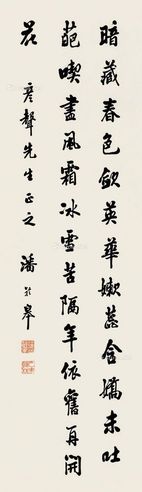 暗藏春色飲英華嫩蕊含嬌未吐
葩喫盡風霜冰雪苦隔年依舊再開
花
彥聲先生正之 潘齡皋